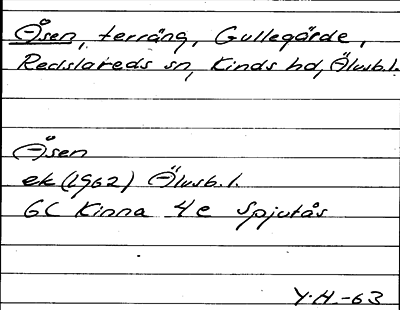 Åsen, terräng, Gullegärde,
Redslareds sn, Kinds hd, Älvsb.l.
Åsen
ek (1962) Älvsb.l.
GC Kinna 4e Spjutås
Y.H.-63